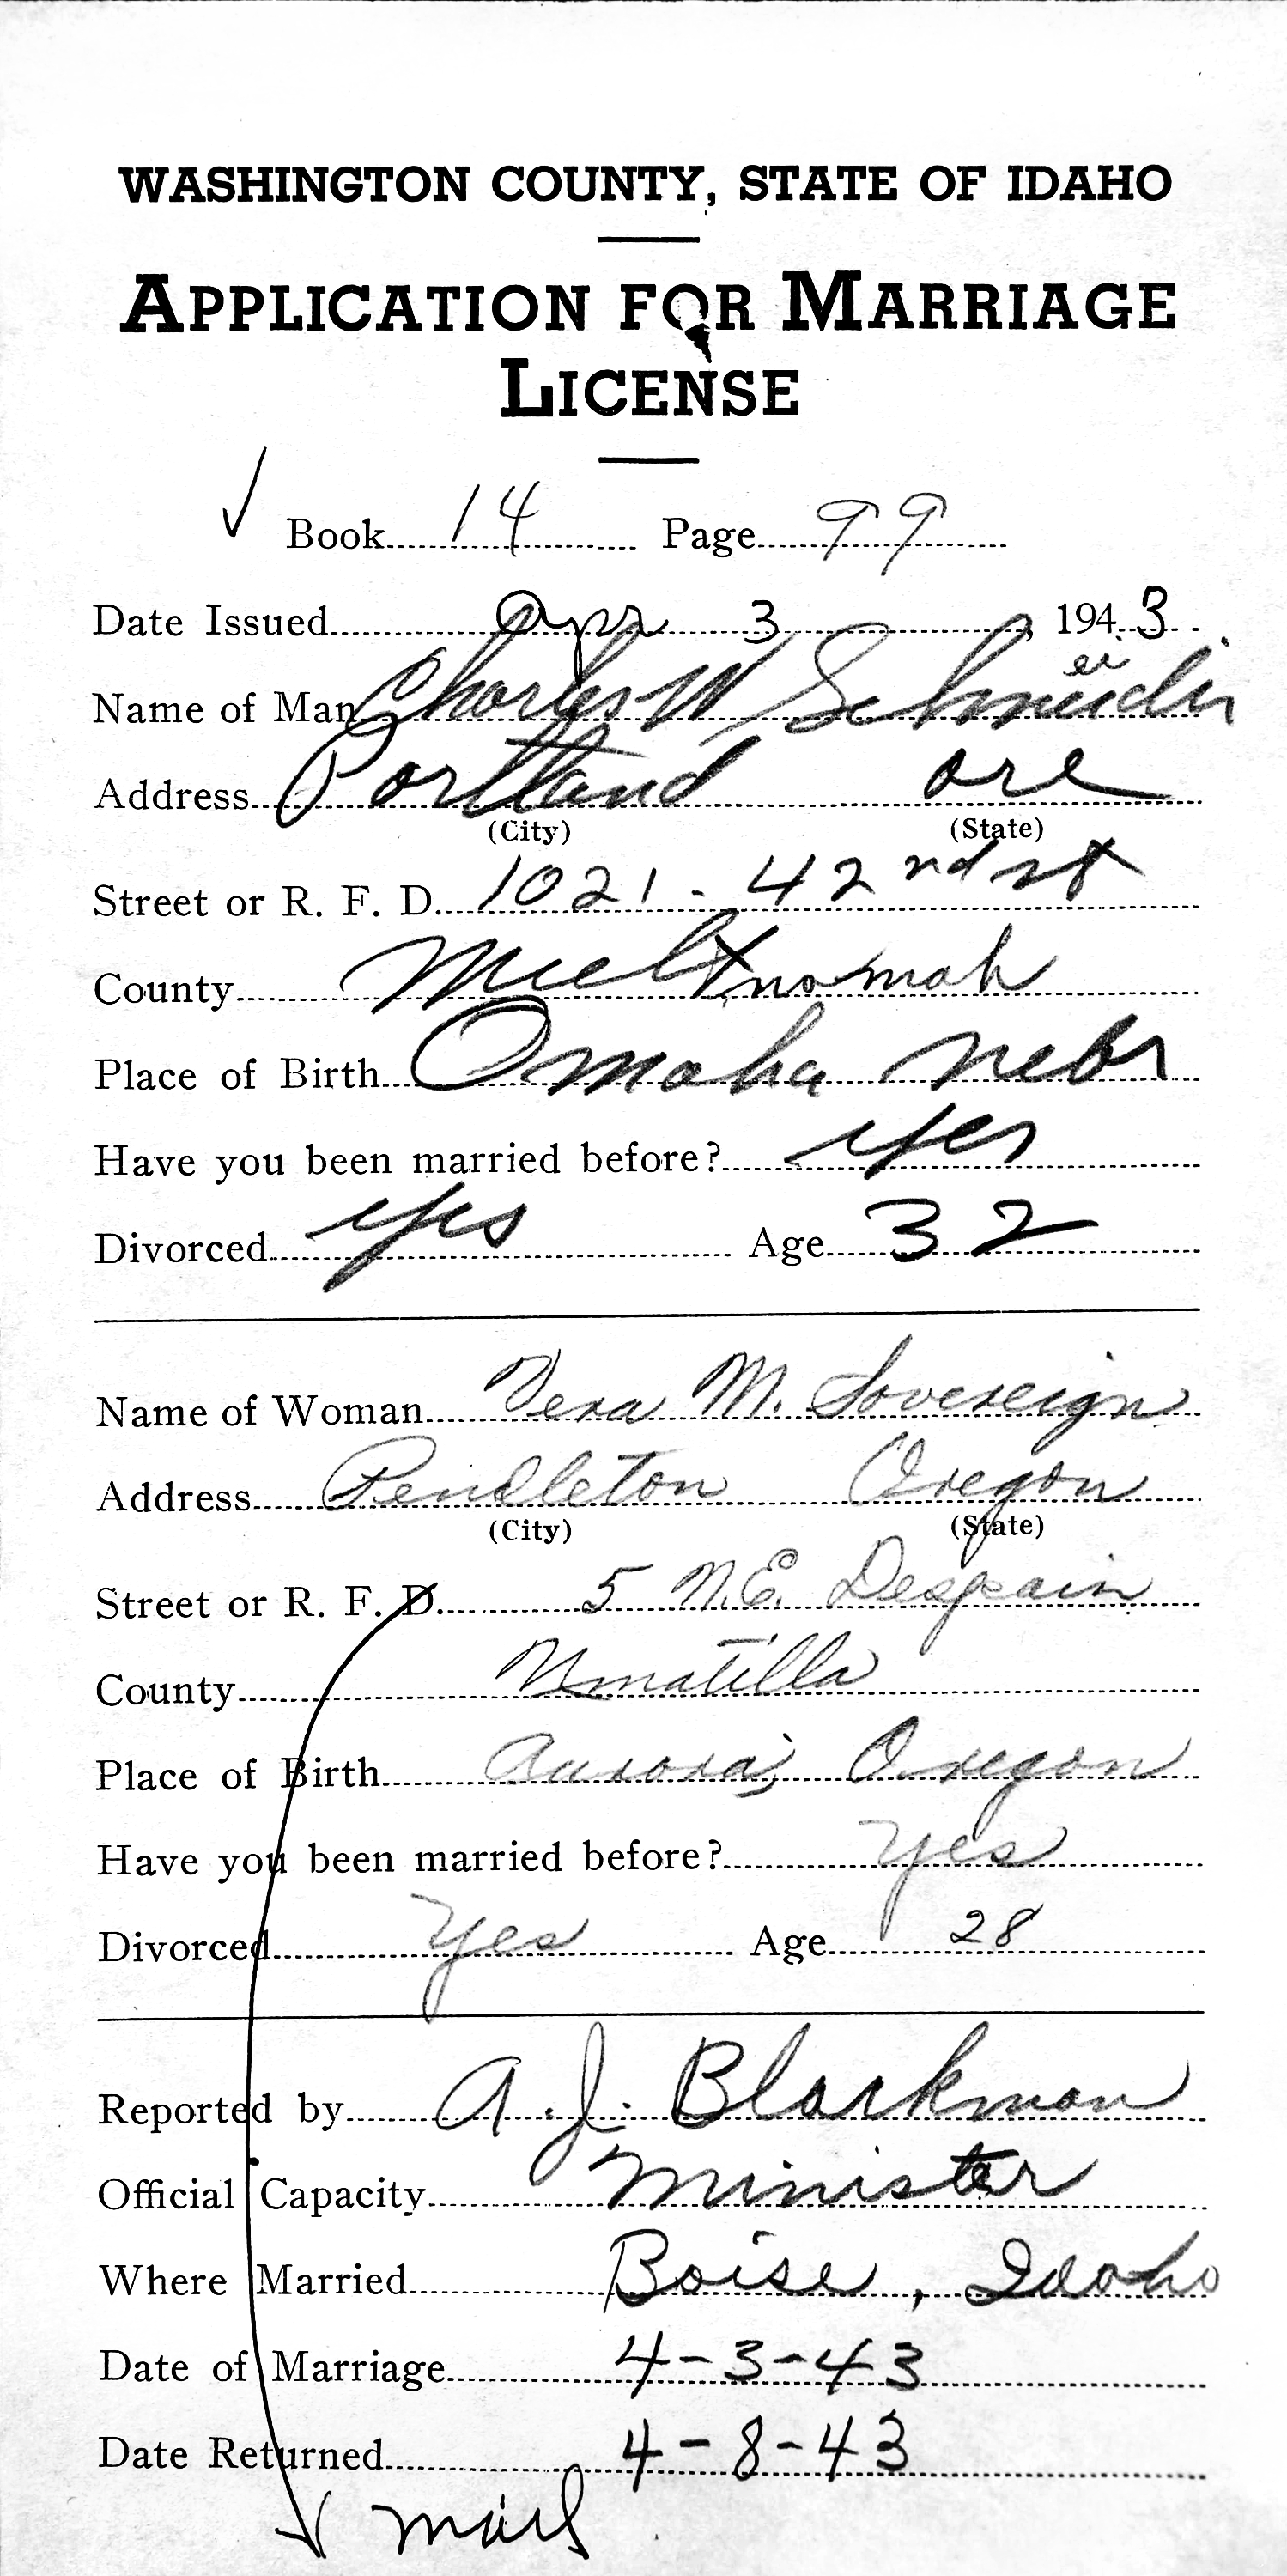 WASHINGTON COUNTY, STATE OF IDAHO
APPLICATION FOR MARRIAGE
LICENSE
✓ Book 14 Page 99
Date Issued Apr 3, 1943.
ei
Name of Man Charles W Schneider
Address Portland Ore
(City) (State)
Street or R. F. D. 1021 - 42nd st
County Multnomah
Place of Birth Omaha Nebr
Have you been married before? yes
Divorced yes Age 32
Name of Woman Vera M. Sovereign
Address Pendleton Oregon
(City) (State)
Street or R. F. D. 5 N.E. Despain
County Umatilla
Place of Birth Aurora, Oregon
Have you been married before? yes
Divorced yes Age 28
Reported by A. J. Blackman
Official Capacity Minister
Where Married Boise, Idaho
Date of Marriage 4-3-43
Date Returned 4-8-43
mail